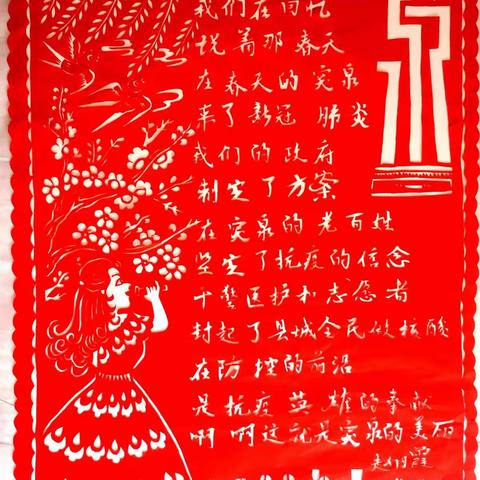 我们在回忆
说着那春天
在春天的突泉
来了新冠 肺炎
我们的政府
制定了方案
在突泉的老百姓
坚定了抗疫的信念
干警医护和志愿者
封起了县城全民做核酸
在防控的前沿
是抗疫英雄的奉献
啊 啊这就是突泉的美丽